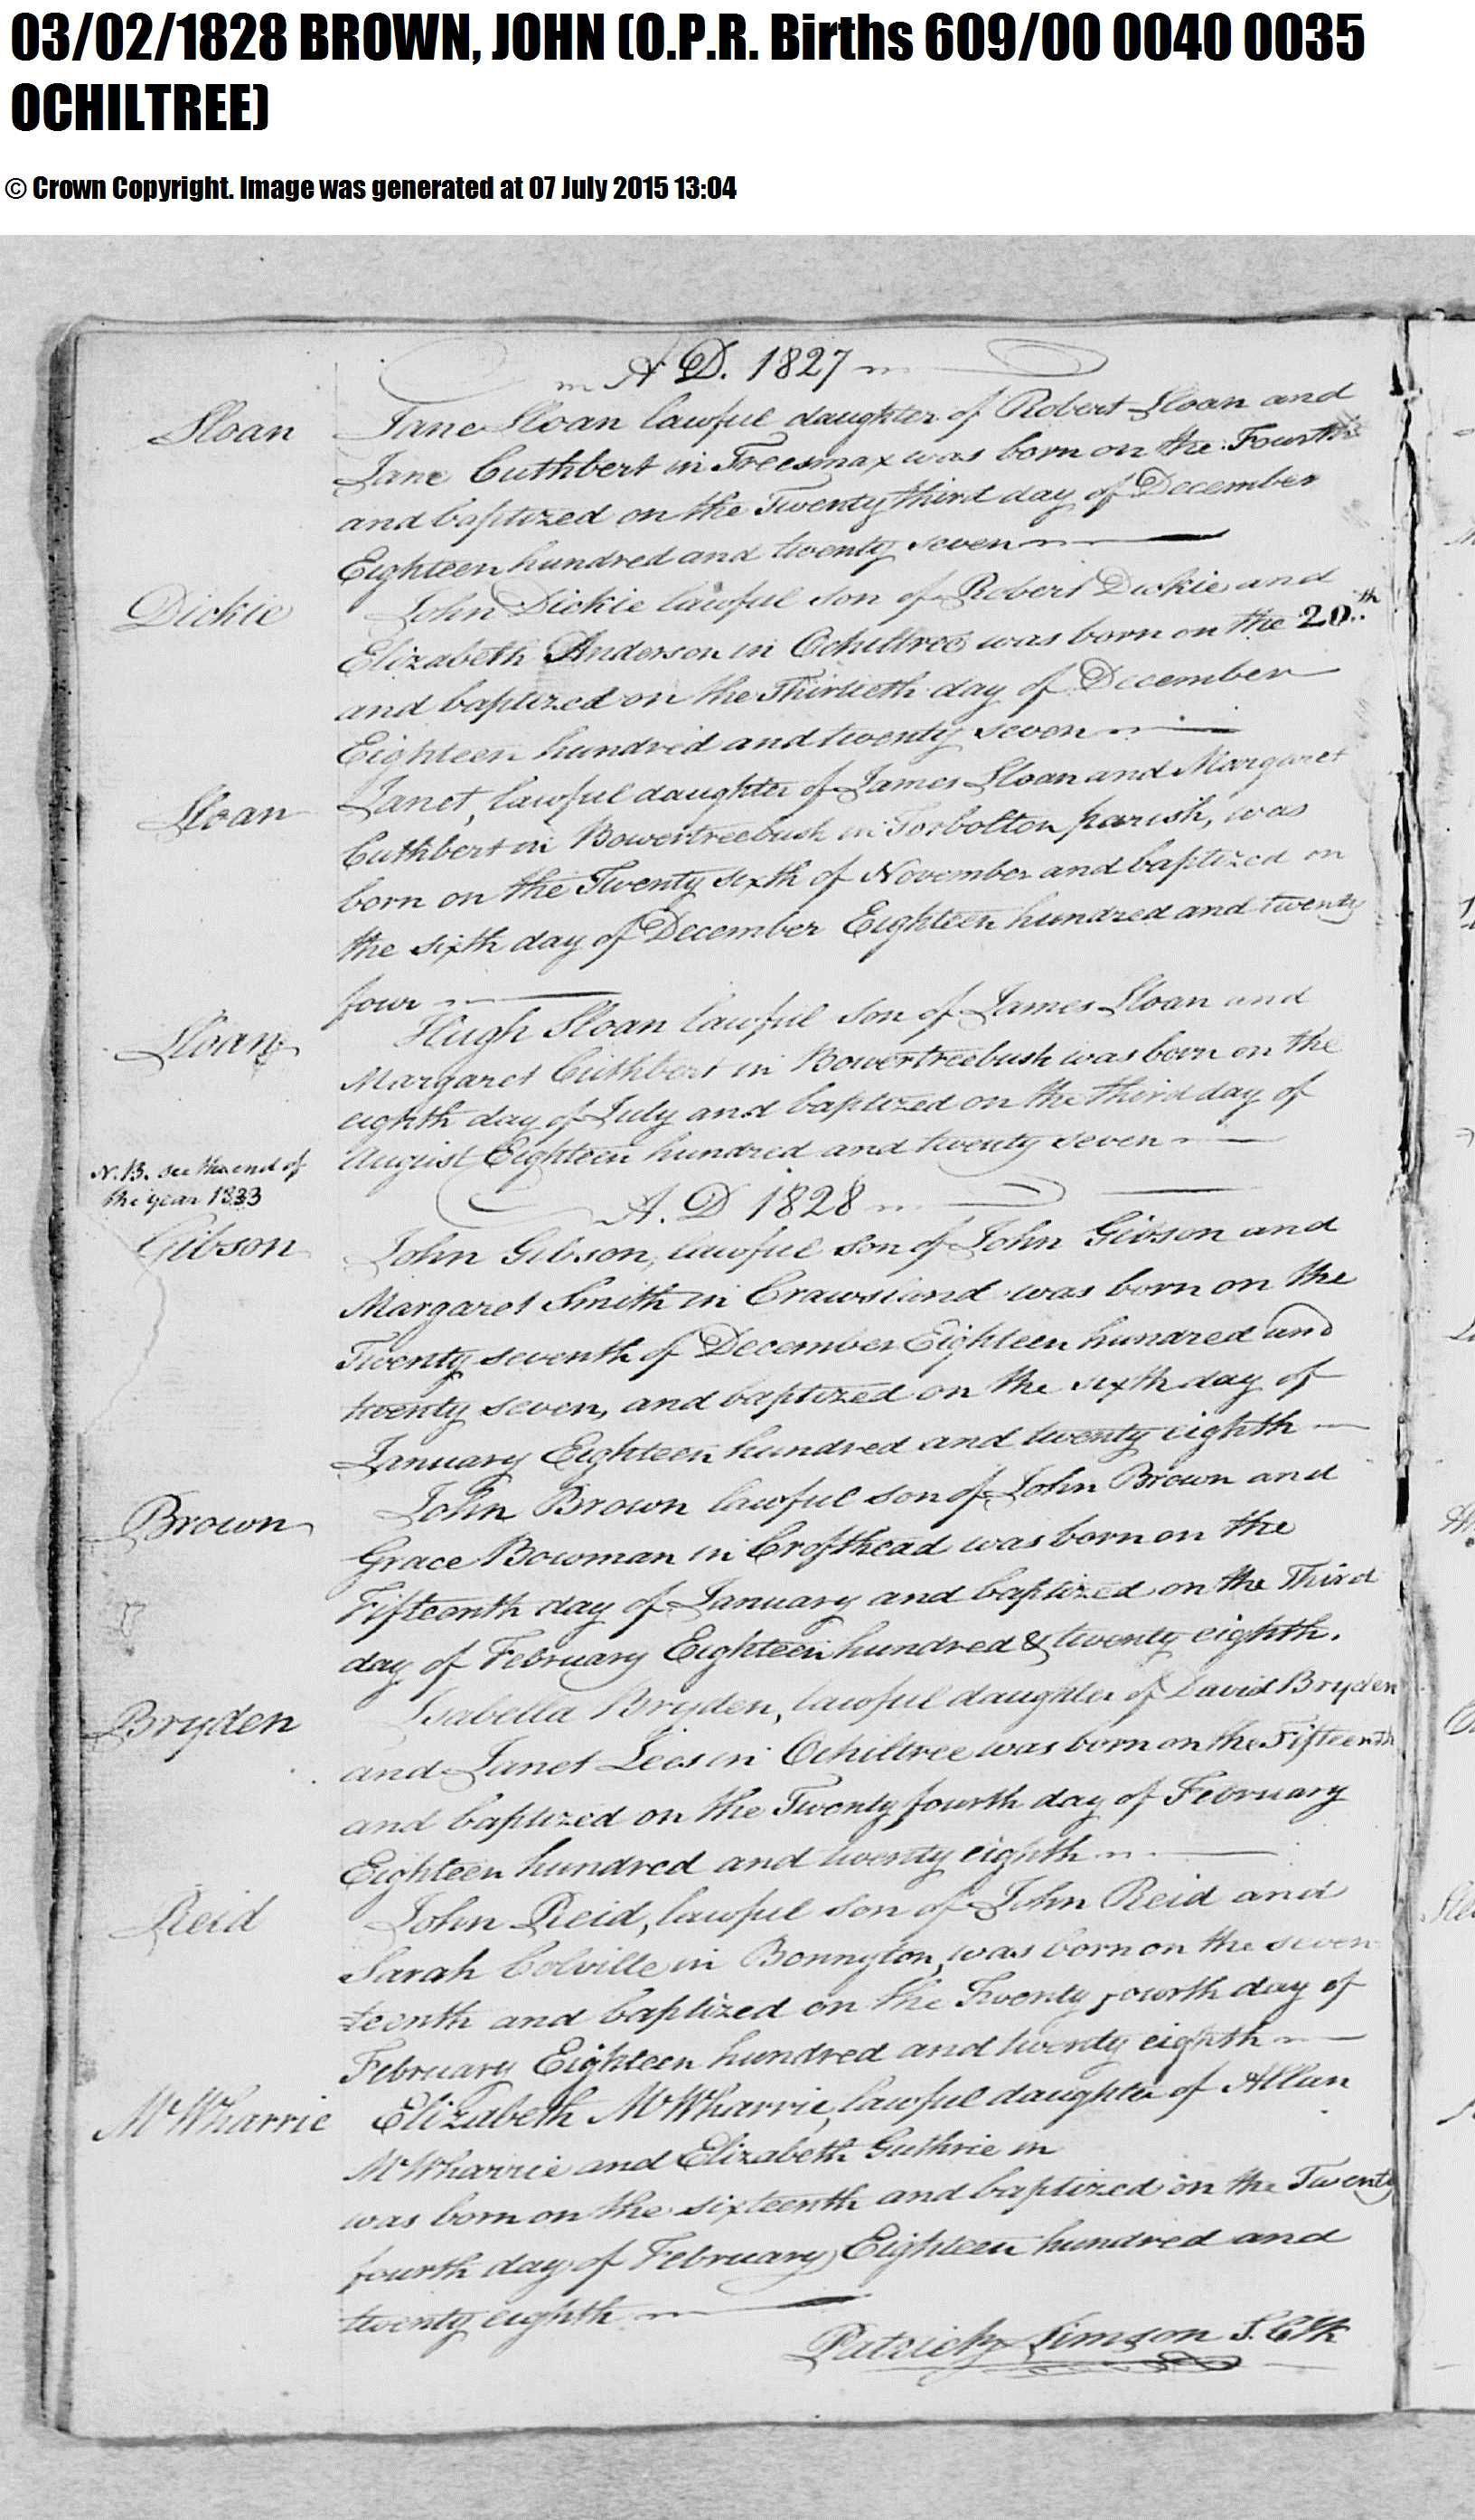 03/02/1828 BROWN, JOHN (O.P.R. Births 609/00 0040 0035
OCHILTREE)
© Crown Copyright. Image was generated at 07 July 2015 13:04
A D. 1827
Sloan
Jane Sloan lawful daughter of Robert Sloan and
Jane Cuthbert in Treesmax was born on the Fourth
and baptized on the Twenty third day of December
Eighteen hundred and twenty seven
Dickie
John Dickie lawful son of Robert Dickie and
Elizabeth Anderson in Ochiltree was born on the 20th
and baptized on the Thirtieth day of December
Eighteen hundred and twenty seven
Sloan
Janet, lawful daughter of James Sloan and Margaret
Cuthbert in Bowertreebush in Torbolton parish, was
born on the Twenty sixth of November and baptized on
the sixth day of December Eighteen hundred and twenty
four
Sloan
Hugh Sloan lawful son of James Sloan and
Margaret Cuthbert in Bowertreebush was born on the
eighth day of July and baptized on the third day of
August Eighteen hundred and twenty seven
N.B. see the end of
the year 1833
A. D 1828
Gibson
John Gibson, lawful son of John Gibson and
Margaret Smith in Crawsland was born on the
Twenty seventh of December Eighteen hundred and
twenty seven, and baptized on the sixth day of
January Eighteen hundred and twenty eighth
Brown
John Brown lawful son of John Brown and
Grace Bowman in Crofthead was born on the
Fifteenth day of January and baptized on the Third
day of February Eighteen hundred & twenty eighth.
Bryden
Isabella Bryden, lawful daughter of David Bryden
and Janet Lees in Ochiltree was born on the Fifteenth
and baptized on the Twenty fourth day of February
Eighteen hundred and twenty eighth
Reid
John Reid, lawful son of John Reid and
Sarah Colville in Bonnyton, was born on the seven
teenth and baptized on the Twenty fourth day of
February Eighteen hundred and twenty eighth
McWharrie
Elizabeth McWharrie, lawful daughter of Allan
McWharrie and Elizabeth Guthrie in
was born on the sixteenth and baptized on the Twenty
fourth day of February Eighteen hundred and
twenty eighth
Patrick Simson S. Clk